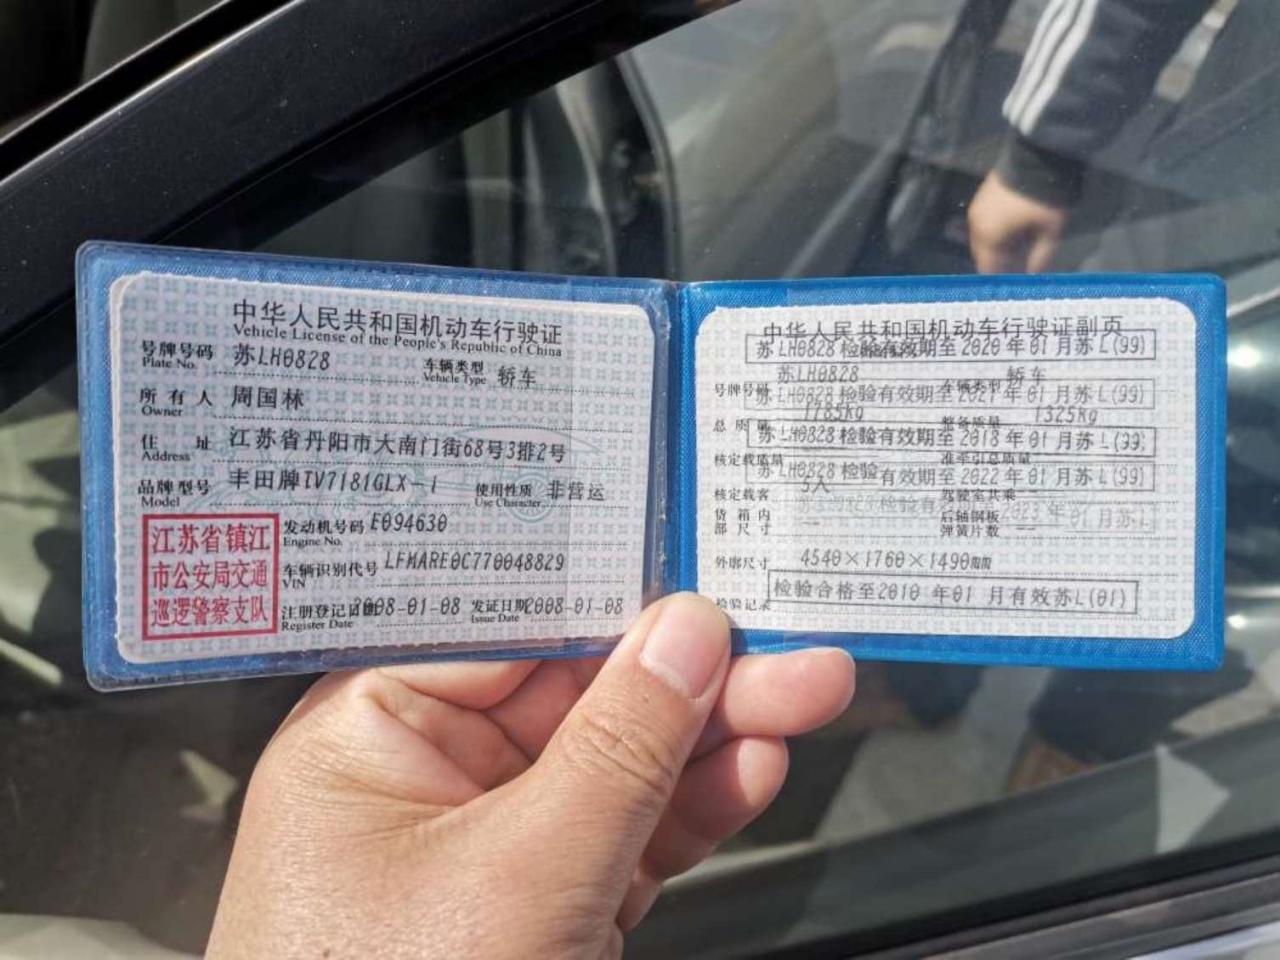 中华人民共和国机动车行驶证
Vehicle License of the People's Republic of China
号牌号码 苏LH0828 车辆类型 轿车
Plate No. Vehicle Type
所有人 周国林
Owner
住址 江苏省丹阳市大南门街68号3排2号
Address
品牌型号 丰田牌TV7181GLX-i 使用性质 非营运
Model Use Character
江苏省镇江
市公安局交通
巡逻警察支队
发动机号码 E094630
Engine No.
车辆识别代号 LFMARE0C770048829
VIN
注册登记日期 2008-01-08 发证日期 2008-01-08
Register Date Issue Date
中华人民共和国机动车行驶证副页
苏LH0828 检验有效期至2020年01月苏L(99)
号牌号码 苏LH0828 车辆类型 轿车
苏LH0828 检验有效期至2021年01月苏L(99)
总质量 1785kg 整备质量 1325kg
苏LH0828 检验有效期至2018年01月苏L(99)
核定载质量 准牵引总质量
苏LH0828 检验有效期至2022年01月苏L(99)
核定载客 5人 驾驶室共乘
检验有 2023年01月苏L
货箱内部尺寸 后轴钢板弹簧片数
外廓尺寸 4540×1760×1490
检验记录 检验合格至2010年01月有效苏L(01)